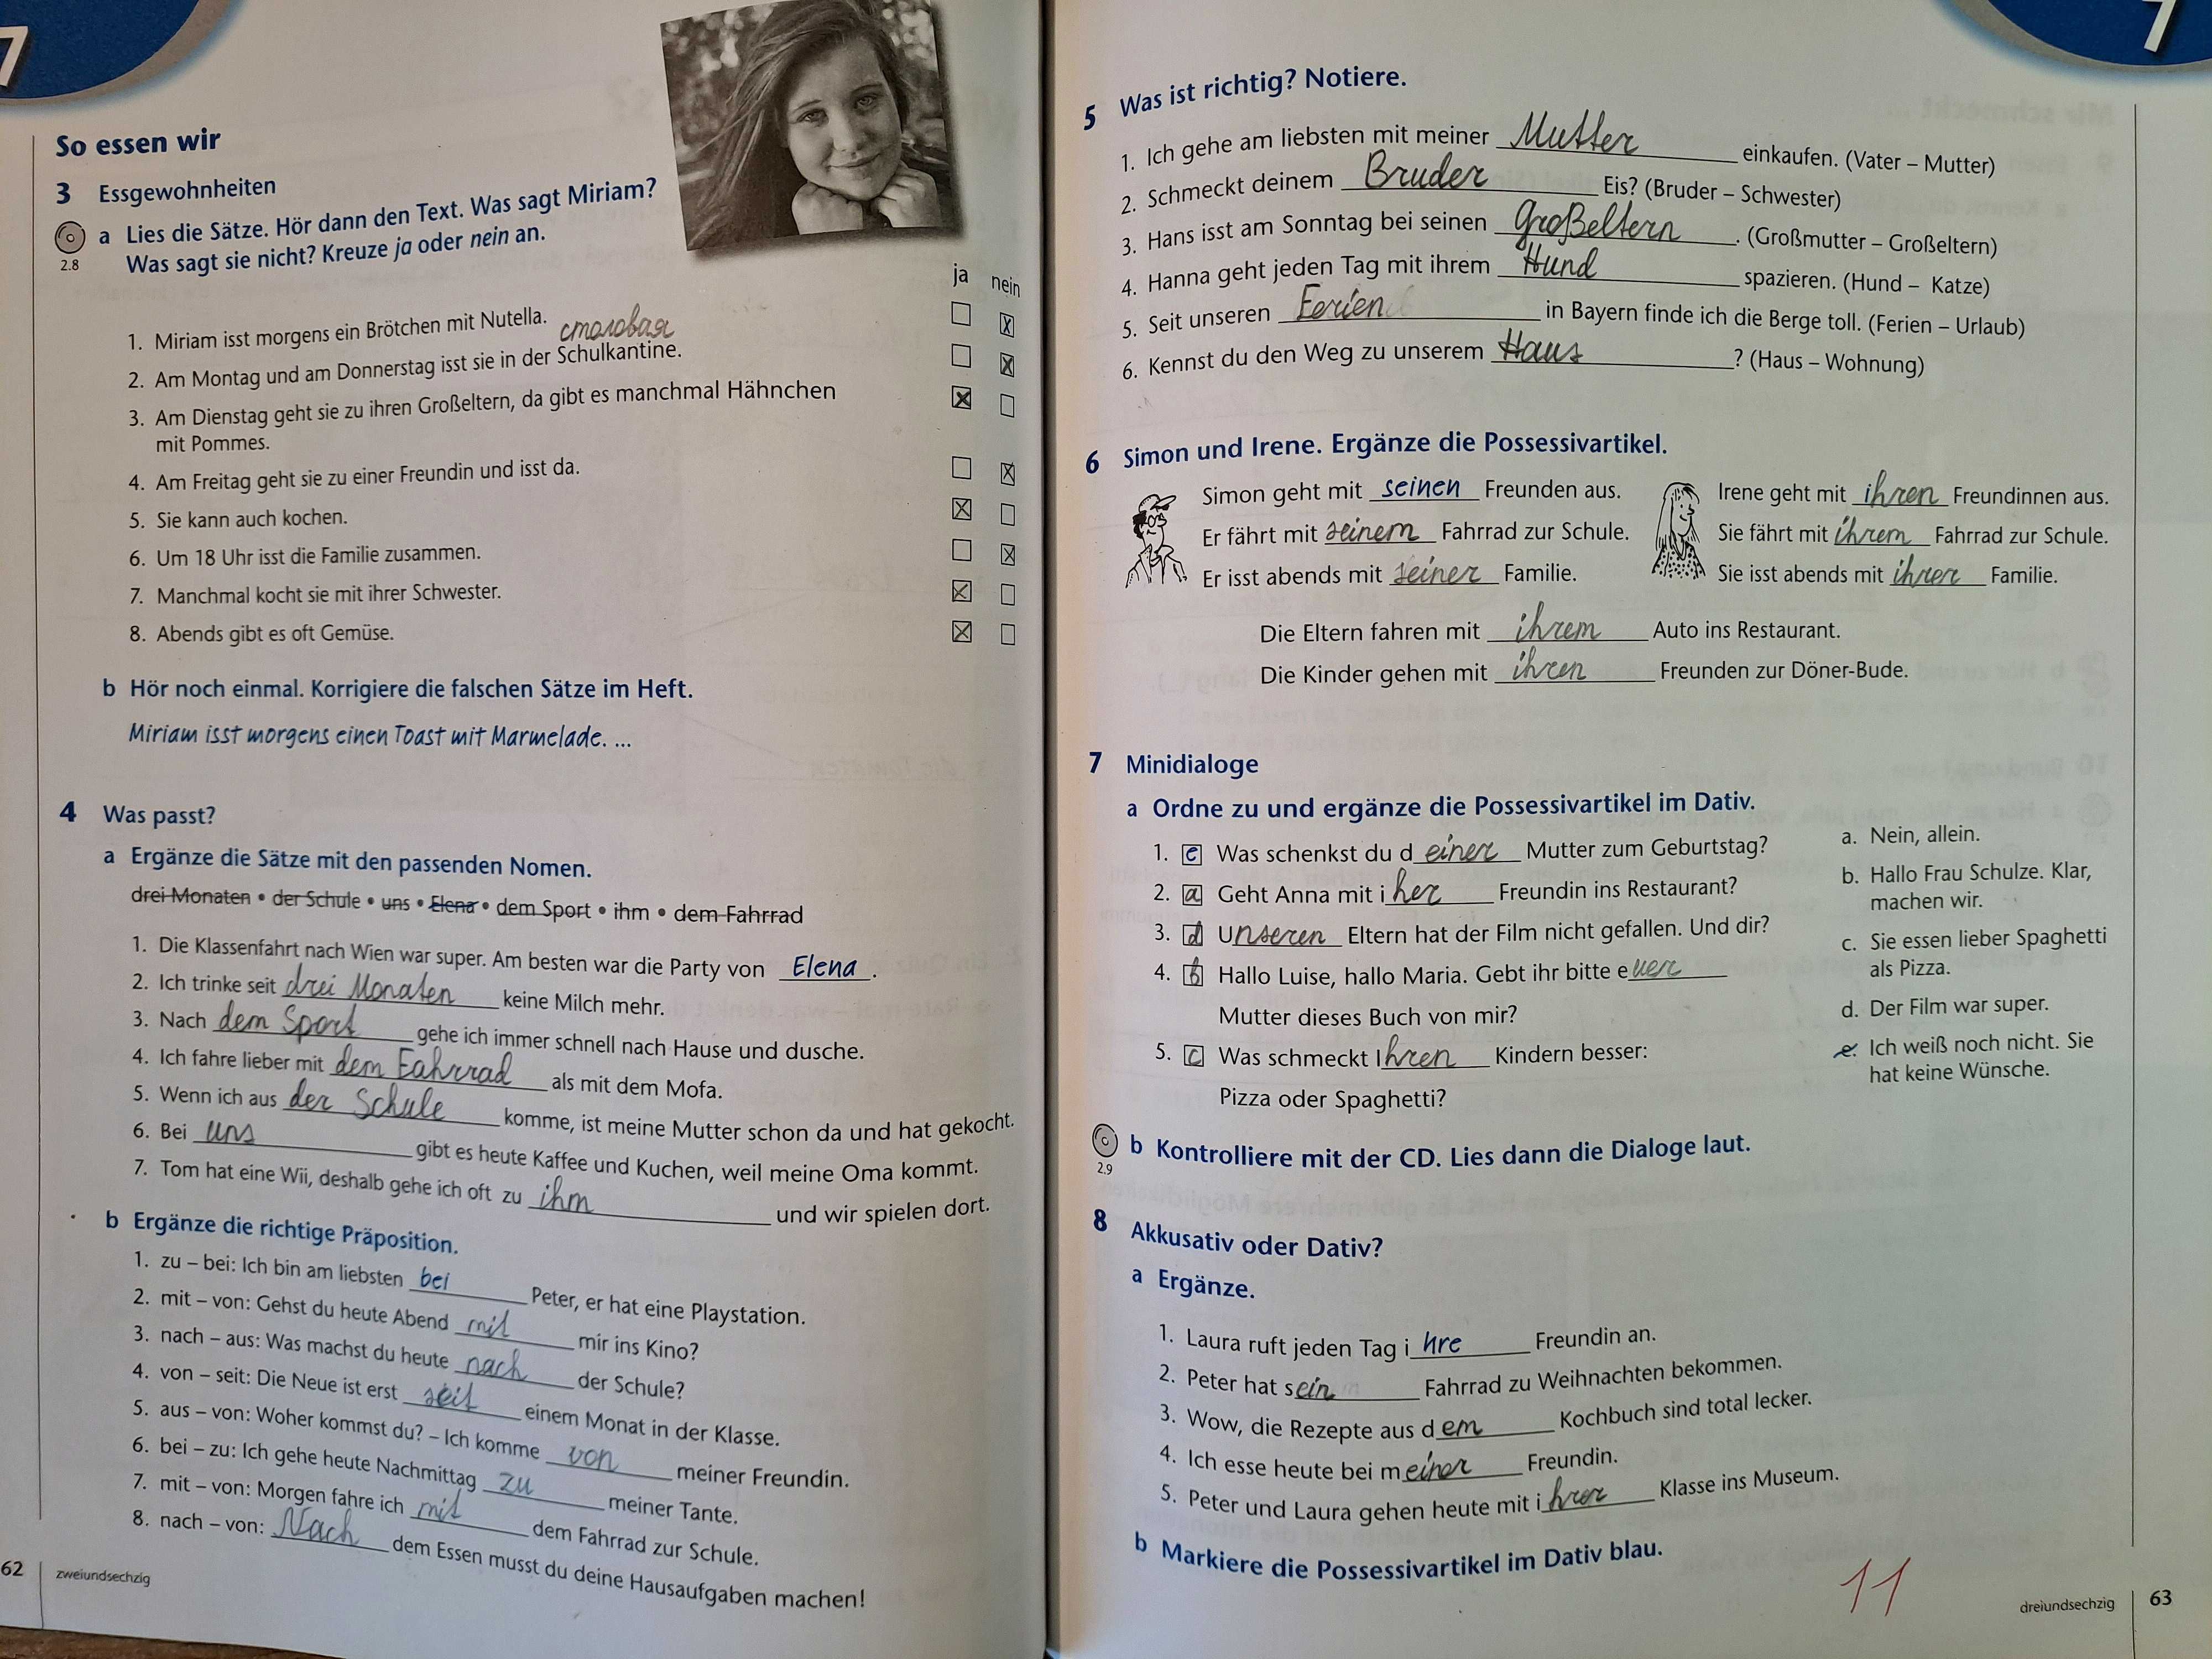 7
So essen wir
3 Essgewohnheiten
2.8
a Lies die Sätze. Hör dann den Text. Was sagt Miriam?
Was sagt sie nicht? Kreuze ja oder nein an.
ja nein
1. Miriam isst morgens ein Brötchen mit Nutella.
столовая
2. Am Montag und am Donnerstag isst sie in der Schulkantine.
3. Am Dienstag geht sie zu ihren Großeltern, da gibt es manchmal Hähnchen
mit Pommes.
4. Am Freitag geht sie zu einer Freundin und isst da.
5. Sie kann auch kochen.
6. Um 18 Uhr isst die Familie zusammen.
7. Manchmal kocht sie mit ihrer Schwester.
8. Abends gibt es oft Gemüse.
b Hör noch einmal. Korrigiere die falschen Sätze im Heft.
Miriam isst morgens einen Toast mit Marmelade. ...
4 Was passt?
a Ergänze die Sätze mit den passenden Nomen.
drei Monaten • der Schule • uns • Elena • dem Sport • ihm • dem Fahrrad
1. Die Klassenfahrt nach Wien war super. Am besten war die Party von Elena.
2. Ich trinke seit drei Monaten keine Milch mehr.
3. Nach dem Sport gehe ich immer schnell nach Hause und dusche.
4. Ich fahre lieber mit dem Fahrrad als mit dem Mofa.
5. Wenn ich aus der Schule komme, ist meine Mutter schon da und hat gekocht.
6. Bei uns gibt es heute Kaffee und Kuchen, weil meine Oma kommt.
7. Tom hat eine Wii, deshalb gehe ich oft zu ihm und wir spielen dort.
b Ergänze die richtige Präposition.
1. zu – bei: Ich bin am liebsten bei Peter, er hat eine Playstation.
2. mit – von: Gehst du heute Abend mit mir ins Kino?
3. nach – aus: Was machst du heute nach der Schule?
4. von – seit: Die Neue ist erst seit einem Monat in der Klasse.
5. aus – von: Woher kommst du? – Ich komme von meiner Freundin.
6. bei – zu: Ich gehe heute Nachmittag zu meiner Tante.
7. mit – von: Morgen fahre ich mit dem Fahrrad zur Schule.
8. nach – von: Nach dem Essen musst du deine Hausaufgaben machen!
62 zweiundsechzig
7
5 Was ist richtig? Notiere.
1. Ich gehe am liebsten mit meiner Mutter einkaufen. (Vater – Mutter)
2. Schmeckt deinem Bruder Eis? (Bruder – Schwester)
3. Hans isst am Sonntag bei seinen Großeltern. (Großmutter – Großeltern)
4. Hanna geht jeden Tag mit ihrem Hund spazieren. (Hund – Katze)
5. Seit unseren Ferien in Bayern finde ich die Berge toll. (Ferien – Urlaub)
6. Kennst du den Weg zu unserem Haus ? (Haus – Wohnung)
6 Simon und Irene. Ergänze die Possessivartikel.
Simon geht mit seinen Freunden aus.
Er fährt mit seinem Fahrrad zur Schule.
Er isst abends mit seiner Familie.
Irene geht mit ihren Freundinnen aus.
Sie fährt mit ihrem Fahrrad zur Schule.
Sie isst abends mit ihrer Familie.
Die Eltern fahren mit ihrem Auto ins Restaurant.
Die Kinder gehen mit ihren Freunden zur Döner-Bude.
7 Minidialoge
a Ordne zu und ergänze die Possessivartikel im Dativ.
1. e Was schenkst du deiner Mutter zum Geburtstag?
2. a Geht Anna mit iher Freundin ins Restaurant?
3. d Unseren Eltern hat der Film nicht gefallen. Und dir?
4. b Hallo Luise, hallo Maria. Gebt ihr bitte euer
Mutter dieses Buch von mir?
5. c Was schmeckt Ihren Kindern besser:
Pizza oder Spaghetti?
a. Nein, allein.
b. Hallo Frau Schulze. Klar,
machen wir.
c. Sie essen lieber Spaghetti
als Pizza.
d. Der Film war super.
e. Ich weiß noch nicht. Sie
hat keine Wünsche.
2.9
b Kontrolliere mit der CD. Lies dann die Dialoge laut.
8 Akkusativ oder Dativ?
a Ergänze.
1. Laura ruft jeden Tag ihre Freundin an.
2. Peter hat sein Fahrrad zu Weihnachten bekommen.
3. Wow, die Rezepte aus dem Kochbuch sind total lecker.
4. Ich esse heute bei meiner Freundin.
5. Peter und Laura gehen heute mit ihrer Klasse ins Museum.
b Markiere die Possessivartikel im Dativ blau.
11
dreiundsechzig 63